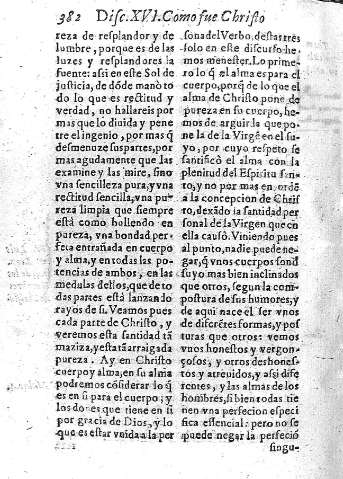 382 Disc. XVI. Como fue Christo
reza de resplandor y de
lumbre, porque es de las
luzes y resplandores la
fuente: assi en este Sol de
justicia, de dóde manò to
do lo que es rectitud y
verdad, no hallareis por
mas que lo diuida y pene
tre el ingenio, por mas q̃
desmenuze sus partes, por
mas agudamente que las
examine y las mire, sino
vna sencilleza pura, y vna
rectitud senzilla, vna pu
reza limpia que siempre
està como bollendo en
pureza, vna bondad per-
feta entrañada en cuerpo
y alma, y en todas las po-
tencias de ambos, en las
medulas dellos, que de to
das partes està lanzando
rayos de si. Veamos pues
cada parte de Christo, y
veremos esta santidad tã
maziza, y està tã arraigada
pureza. Ay en Christo
cuerpo y alma, en su alma
podremos cósiderar lo q̃
es en si para el cuerpo; y
los dones que tiene en si
por gracia de Dios, y lo
que es estar vnida a la per
sona del Verbo, destas tres
solo en este discurso he-
mos menester. Lo prime-
ro lo q̃ el alma es para el
cuerpo, porq̃ de lo que el
alma de Christo pone de
pureza en su cuerpo, he-
mos de arguir la que po-
ne la de la Virgẽ en el su-
yo, por cuyo respeto se
santificò el alma con la
plenitud del Espiritu san-
to, y no por mas en ordẽ
a la concepcion de Chris
to, dexãdo la santidad per
sonal de la Virgen que en
ella causò. Viniendo pues
al punto, nadie puede ne-
gar, q̃ vnos cuerpos son d̃
suyo mas bien inclinados
que otros, segun la com-
postura de sus humores, y
de aqui nace el ser vnos
de diferẽtes formas, y pos
turas que otros: vemos
vnos honestos y vergon-
çosos, y otros deshones-
tos y atreuidos, y assi dife
rentes, y las almas de los
hombres, si bien todas tie
nen vna perfecion especi
fica essencial: pero no se
puede negar la perfeciõ
singu-